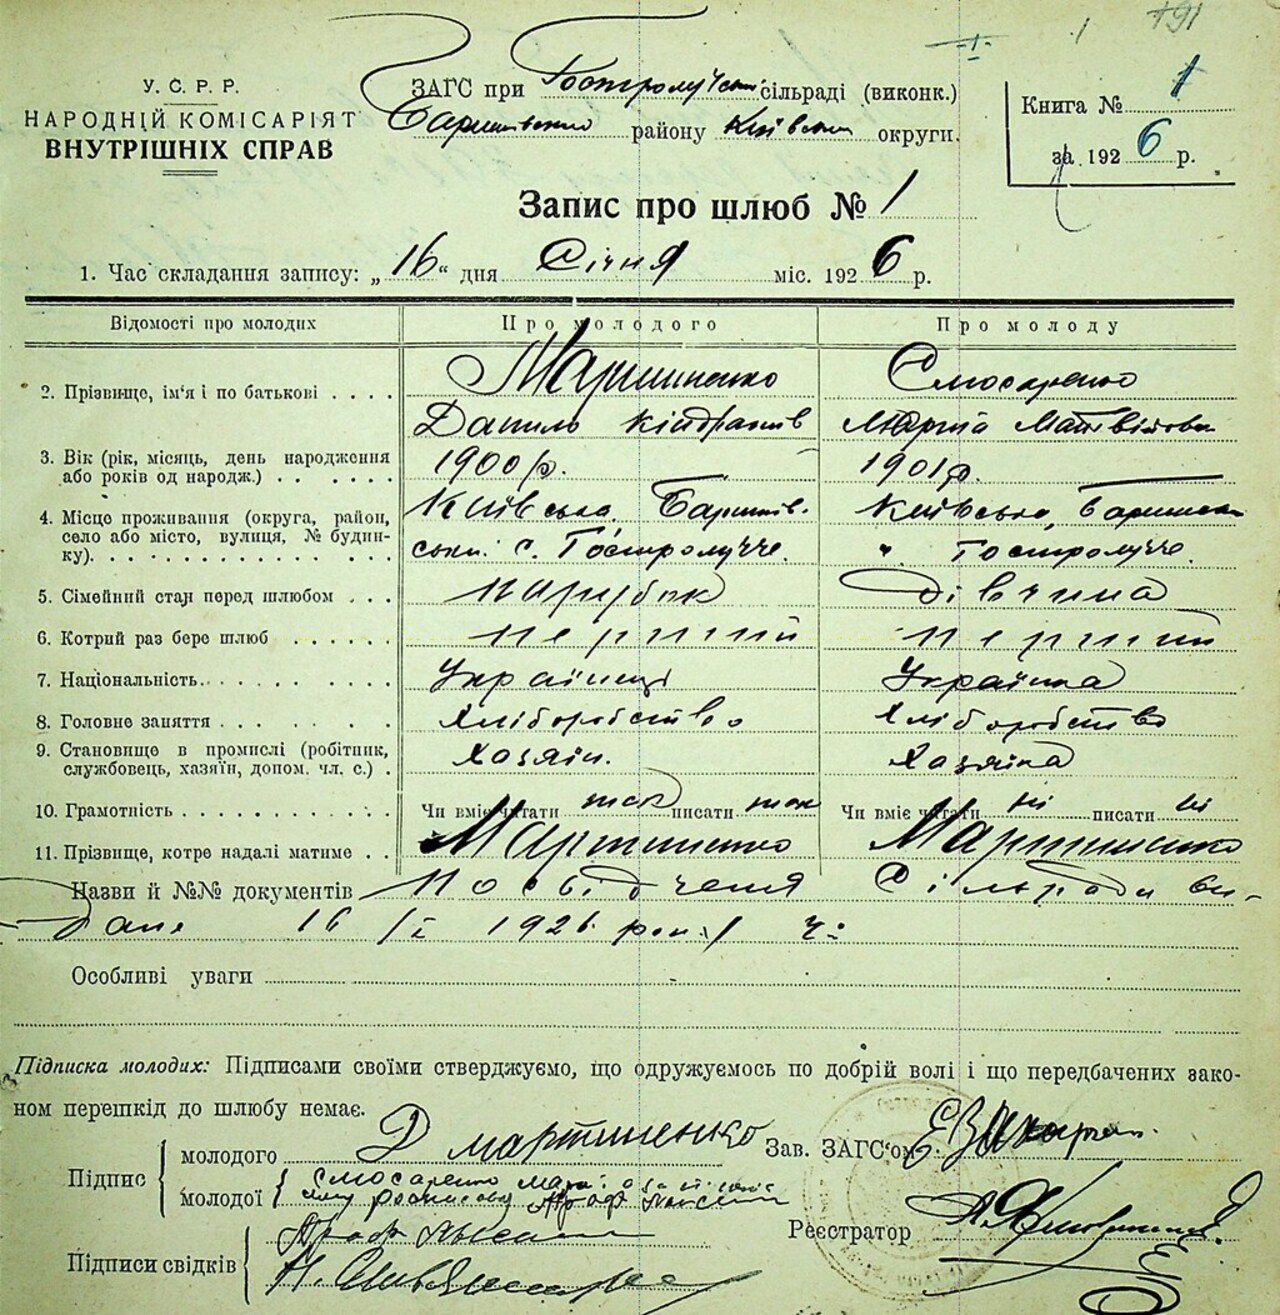 191
У. С. Р. Р.
НАРОДНІЙ КОМІСАРІЯТ
ВНУТРІШНІХ СПРАВ
ЗАГС при Гостролучській сільраді (виконк.)
Баришівського району Київської округи.
Книга № 1
за 1926 р.
Запис про шлюб № 1
1. Час складання запису: „16“ дня Січня міс. 1926 р.
Відомості про молодих Про молодого Про молоду
2. Прізвище, ім'я і по батькові Мартиненко Слюсаренко
Данило Кіндратів Марія Матвійовна
3. Вік (рік, місяць, день народження або років од народж.) 1900 р. 1901 р.
4. Місце проживання (округа, район, Київська, Баришів- Київська, Баришівськ
село або місто, вулиця, № будин- ськ. с. Гостролучче. " Гостролучче.
ку)
5. Сімейний стан перед шлюбом парубок дівчина
6. Котрий раз бере шлюб перший перший
7. Національність Українец Українка
8. Головне заняття Хліборобство Хліборобство
9. Становище в промислі (робітник, службовець, хазяїн, допом. чл. с.) Хозяін. Хозяйка
10. Грамотність Чи вміє читати так писати так Чи вміє читати ні писати ні
11. Прізвище, котре надалі матиме Мартиненко Мартиненко
Назви й №№ документів Посвідченя Сільради ви-
дане 16/I 1926 рок.
Особливі уваги
Підписка молодих: Підписами своїми стверджуємо, що одружуємось по добрій волі і що передбачених зако-
ном перешкід до шлюбу немає.
Підпис
молодого Д Мартиненко
молодої Слюсаренко
Зав. ЗАГС'ом
Реєстратор
Підписи свідків